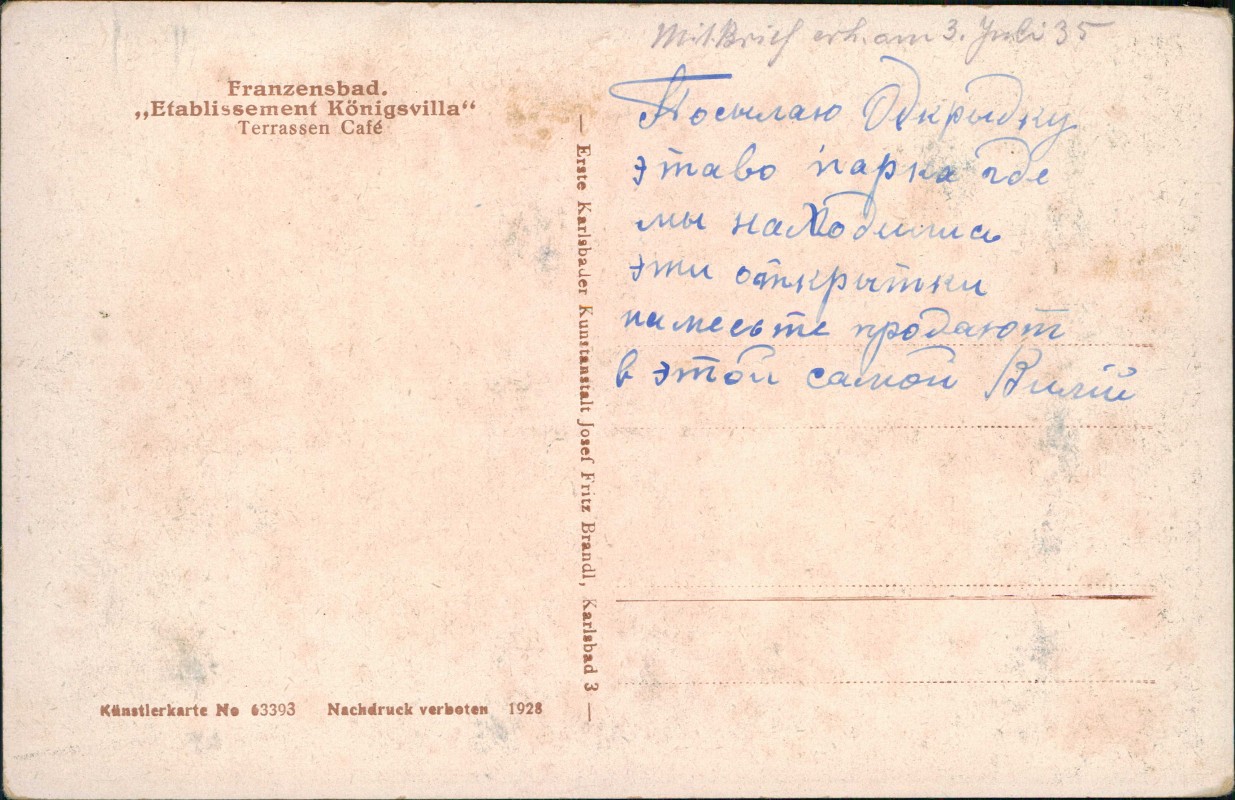 Mit Brief erh. am 3. Juli 35
Franzensbad.
„Etablissement Königsvilla“
Terrassen Café
— Erste Karlsbader Kunstanstalt Josef Fritz Brandl, Karlsbad 3 —
Посылаю Одкрыдку
этаво парка где
мы находились
эти открытки
на месьте продают
в этой самой Вилій
Künstlerkarte No 63393 Nachdruck verboten 1928